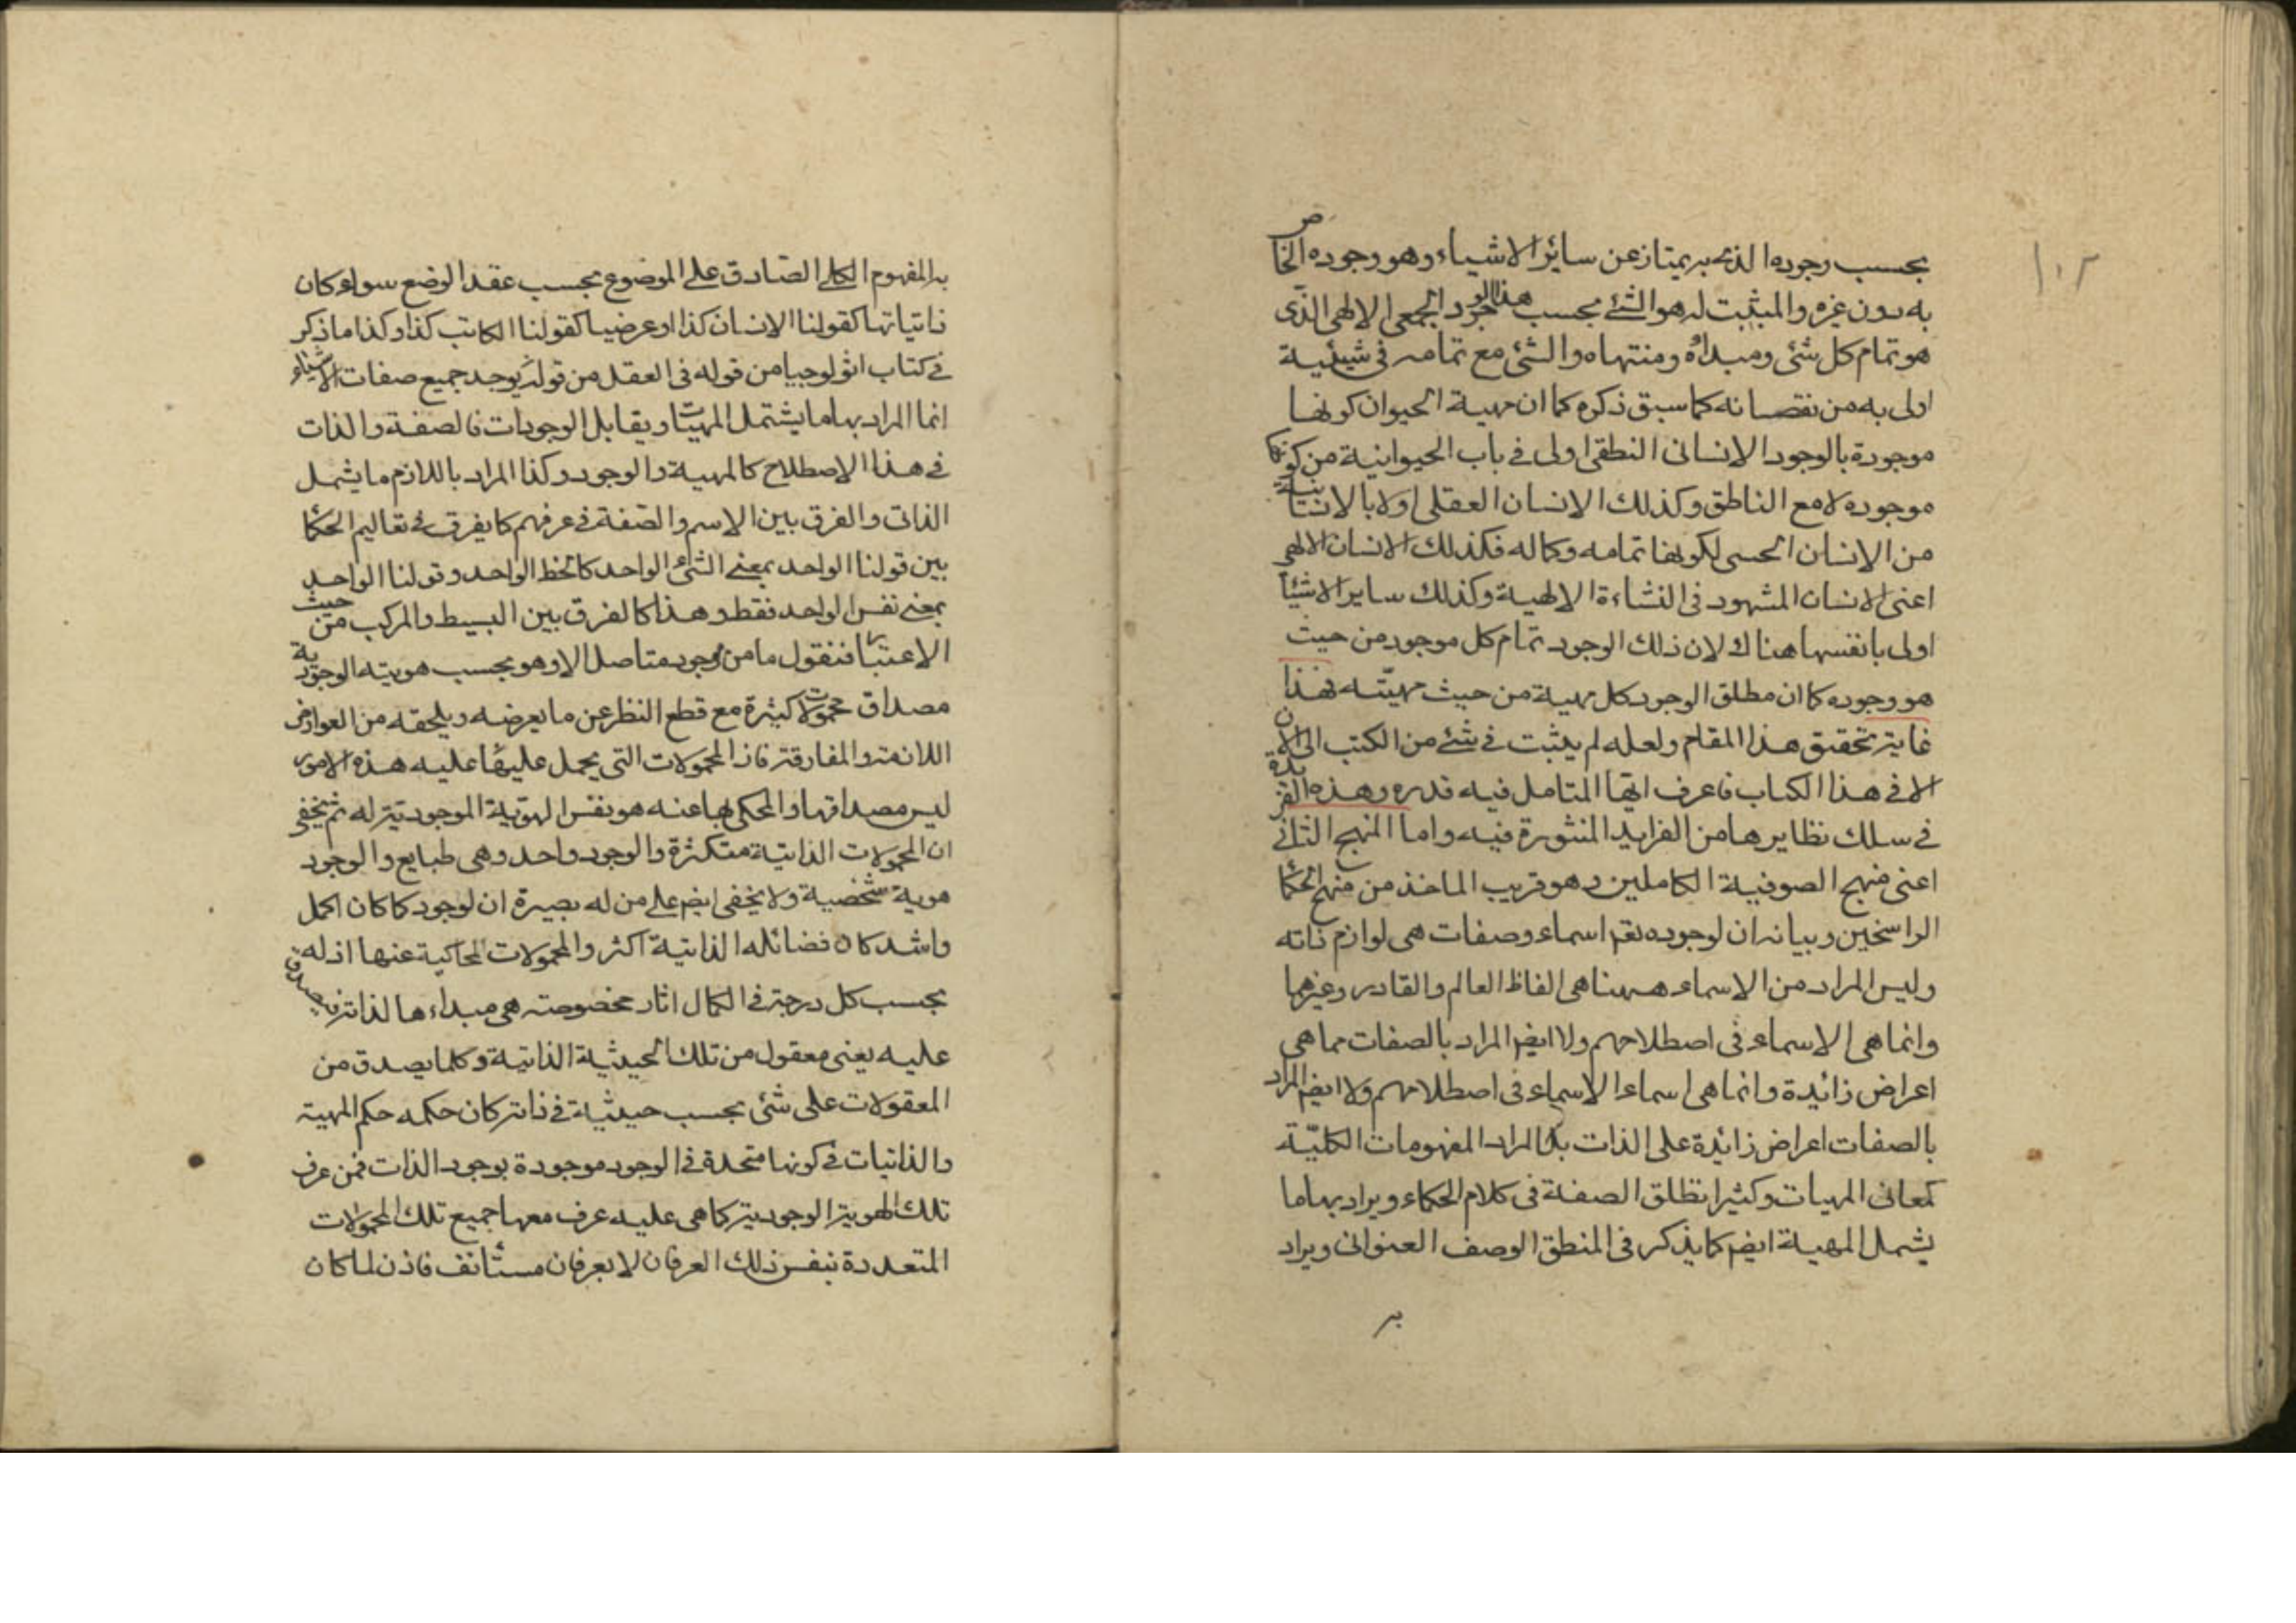 ١٠٢
بحسب وجوده الذى به يمتاز عن سائر الاشياء وهو وجوده الخاص
به دون غيره والمثبت له هو الشئ بحسب هذا الوجود الجمعى الالهى الذى
هو تمام كل شئ ومبداه ومنتهاه والشئ مع تمامه فى شيئية
اولى به من نقصانه كما سبق ذكره كما ان مهية الحيوان كونها
موجودة بالوجود الانسانى النطقى اولى فى باب الحيوانية من كونها
موجوده لا مع الناطق وكذلك الانسان العقلى اولا بالانسانية
من الانسان الحسى لكونها تمامه وكماله فكذلك الانسان الالهى
اعنى الانسان المشهود فى النشاءة الالهية وكذلك ساير الاشيأ
اولى بانفسها هناك لان ذلك الوجود تمام كل موجود من حيث
هو وجوده كما ان مطلق الوجود كل مهية من حيث مهيّته فهذا
غاية تحقيق هذا المقام ولعله لم يثبت فى شئ من الكتب الى الان
الا فى هذا الكتاب فاعرف ايها المتامل فيه قدره وهذه الفريدة
فى سلك نظايرها من الفرايد المنثورة فيه واما المنهج الثانى
اعنى منهج الصوفية الكاملين وهو قريب الماخذ من منهج الحكأ
الراسخين وبيانه ان لوجوده تعم اسماء وصفات هى لوازم ذاته
وليس المراد من الاسماء ههنا هى الفاظ العالم والقادر وغيرهما
وانما هى الاسماء فى اصطلاحهم ولا ايضم المراد بالصفات مما هى
اعراض زائيدة وانما هى اسماء الاسماء فى اصطلاحهم ولا ايضم المراد
بالصفات اعراض زائيدة على الذات بل المراد المفهومات الكليّة
كمعانى المهيات وكثيرا يطلق الصفة فى كلام الحكماء ويراد بها ما
يشمل المهية ايضم كما يذكر فى المنطق الوصف العنوانى ويراد
به
به المفهوم الكلى الصادق على الموضوع بحسب عقد الوضع سواء كان
ذاتيا تها كقولنا الانسان كذا او عرضيا كقولنا الكاتب كذا وكذا ما ذكر
فى كتاب اثولوجيا من قوله فى العقل من قوله يوجد جميع صفات الاشياء
انما المراد بها ما يشتمل المهيات ويقابل الوجودات فالصفة والذات
فى هذا الاصطلاح كالمهية والوجود وكذا المراد باللازم ما يشمل
الذاتى والفرق بين الاسم والصفة فى عرفهم كما يفرق فى تعاليم الحكأ
بين قولنا الواحد بمعنى الشئ الواحد كالخط الواحد وقولنا الواحد
بمعنى نفس الواحد فقط وهذا كالفرق بين البسيط والمركب من حيث
الاعتبار فنقول ما من وجود متاصل الا وهو بحسب هويته الوجودية
مصداق محمولات كثيرة مع قطع النظر عن ما يعرضه ويلحقه من العوارض
اللازمة والمفارقة فان المحمولات التى يحمل عليها عليه هذه الامور
ليس مصداقها والمحكى بها عنه هو نفس الهوية الموجوديتر له ثم يخفى
ان المحمولات الذاتية متكثرة والوجود واحد وهى طبايع والوجود
هوية شخصية ولا يخفى ايضم على من له بصيرة ان لوجود كما كان اكمل
واشد كان فضائله الذاتية اكثر والمحمولات المحاكية عنها اذ له
بحسب كل درجة فى الكمال اثار مخصوصة هى مبداءها لذاته فيصدق
عليه يعنى معقول من تلك الحيثية الذاتية وكلما يصدق من
المعقولات على شئ بحسب حيثية فى ذاته كان حكمه حكم المهية
والذاتيات فى كونها متحدة فى الوجود موجودة بوجود الذات فمن عرف
تلك الهوية الوجودية كما هى عليه عرف معها جميع تلك المحمولات
المتعددة بنفس ذلك العرفان لا بعرفان مستأنف فاذن لما كان